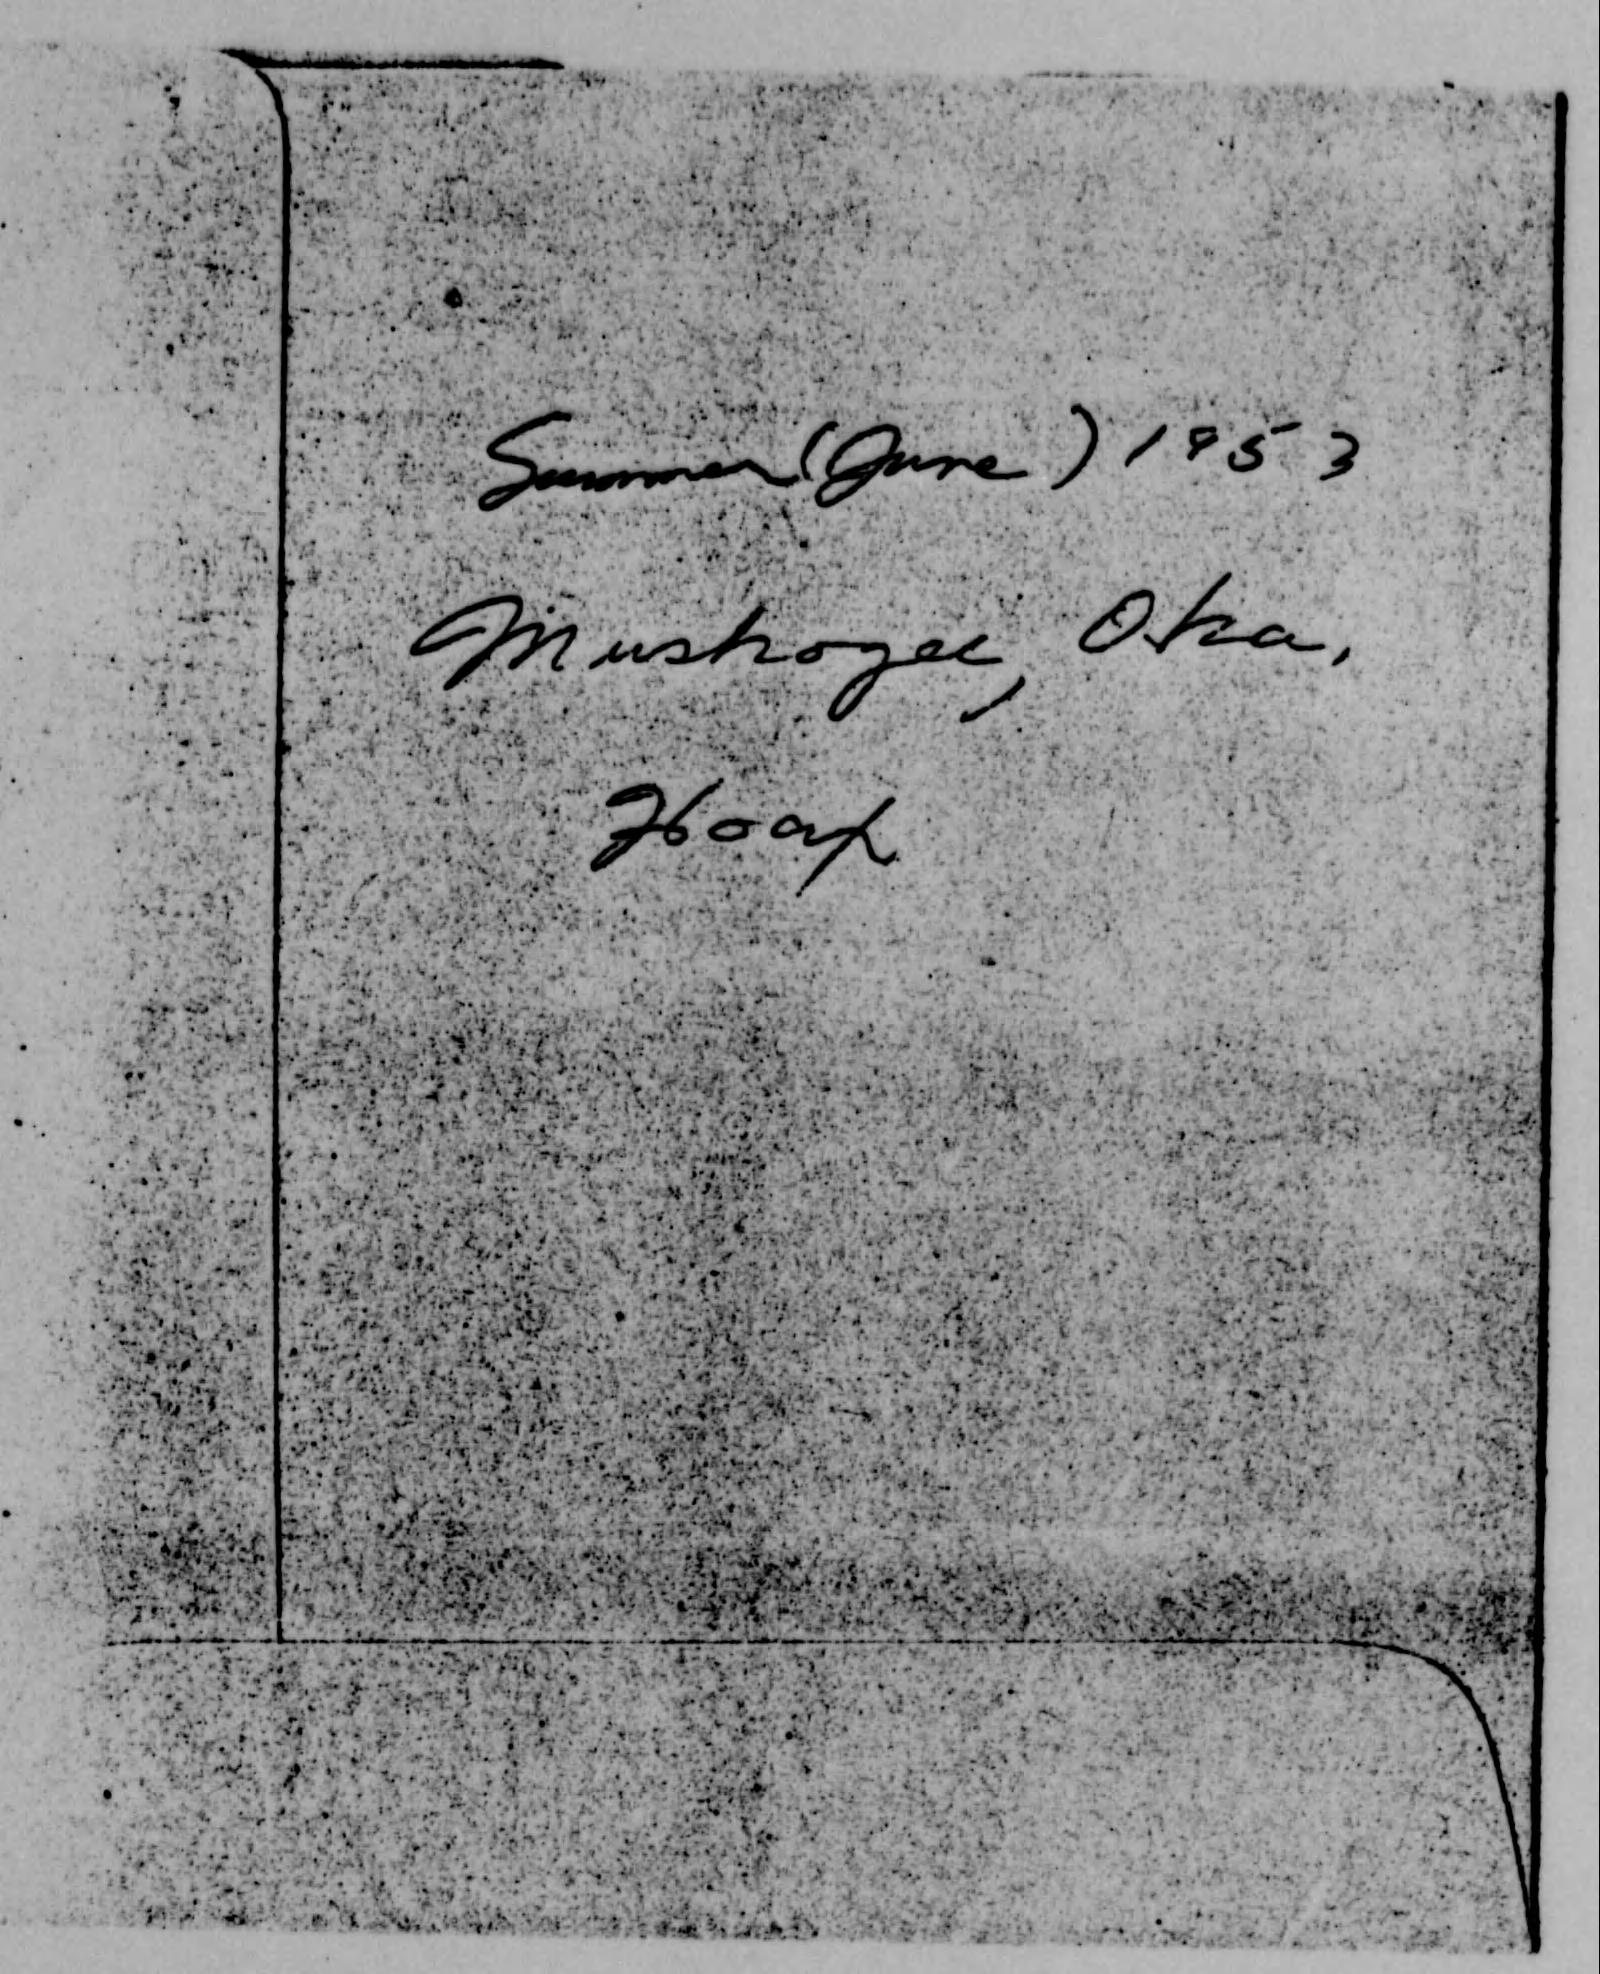 Summer (June) 1953
Muskogee, Oka.
Hoax